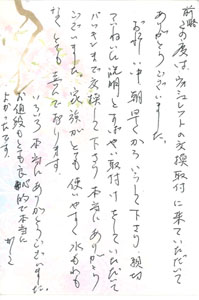 前略
この度は、ウォシュレットの交換取付に来ていただいて
ありがとうございました。
お忙い中朝早くからいらして下さり 親切
ていねいに説明とすばやい取付けをしていただいて
パッキンまで交換して下さり本当にありがとう
ございました。家族がとても使いやすく水もれも
なくとても喜んでおります。
いろいろ本当にありがとうございました。
お値段もとても良心的で本当に
よかったです。